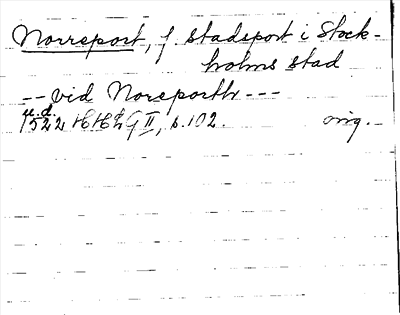 Norreport, f. stadsport i Stock-
holms stad
-- vid Noreporth ---
u.d.
1522 HHLG II, s. 102. orig.